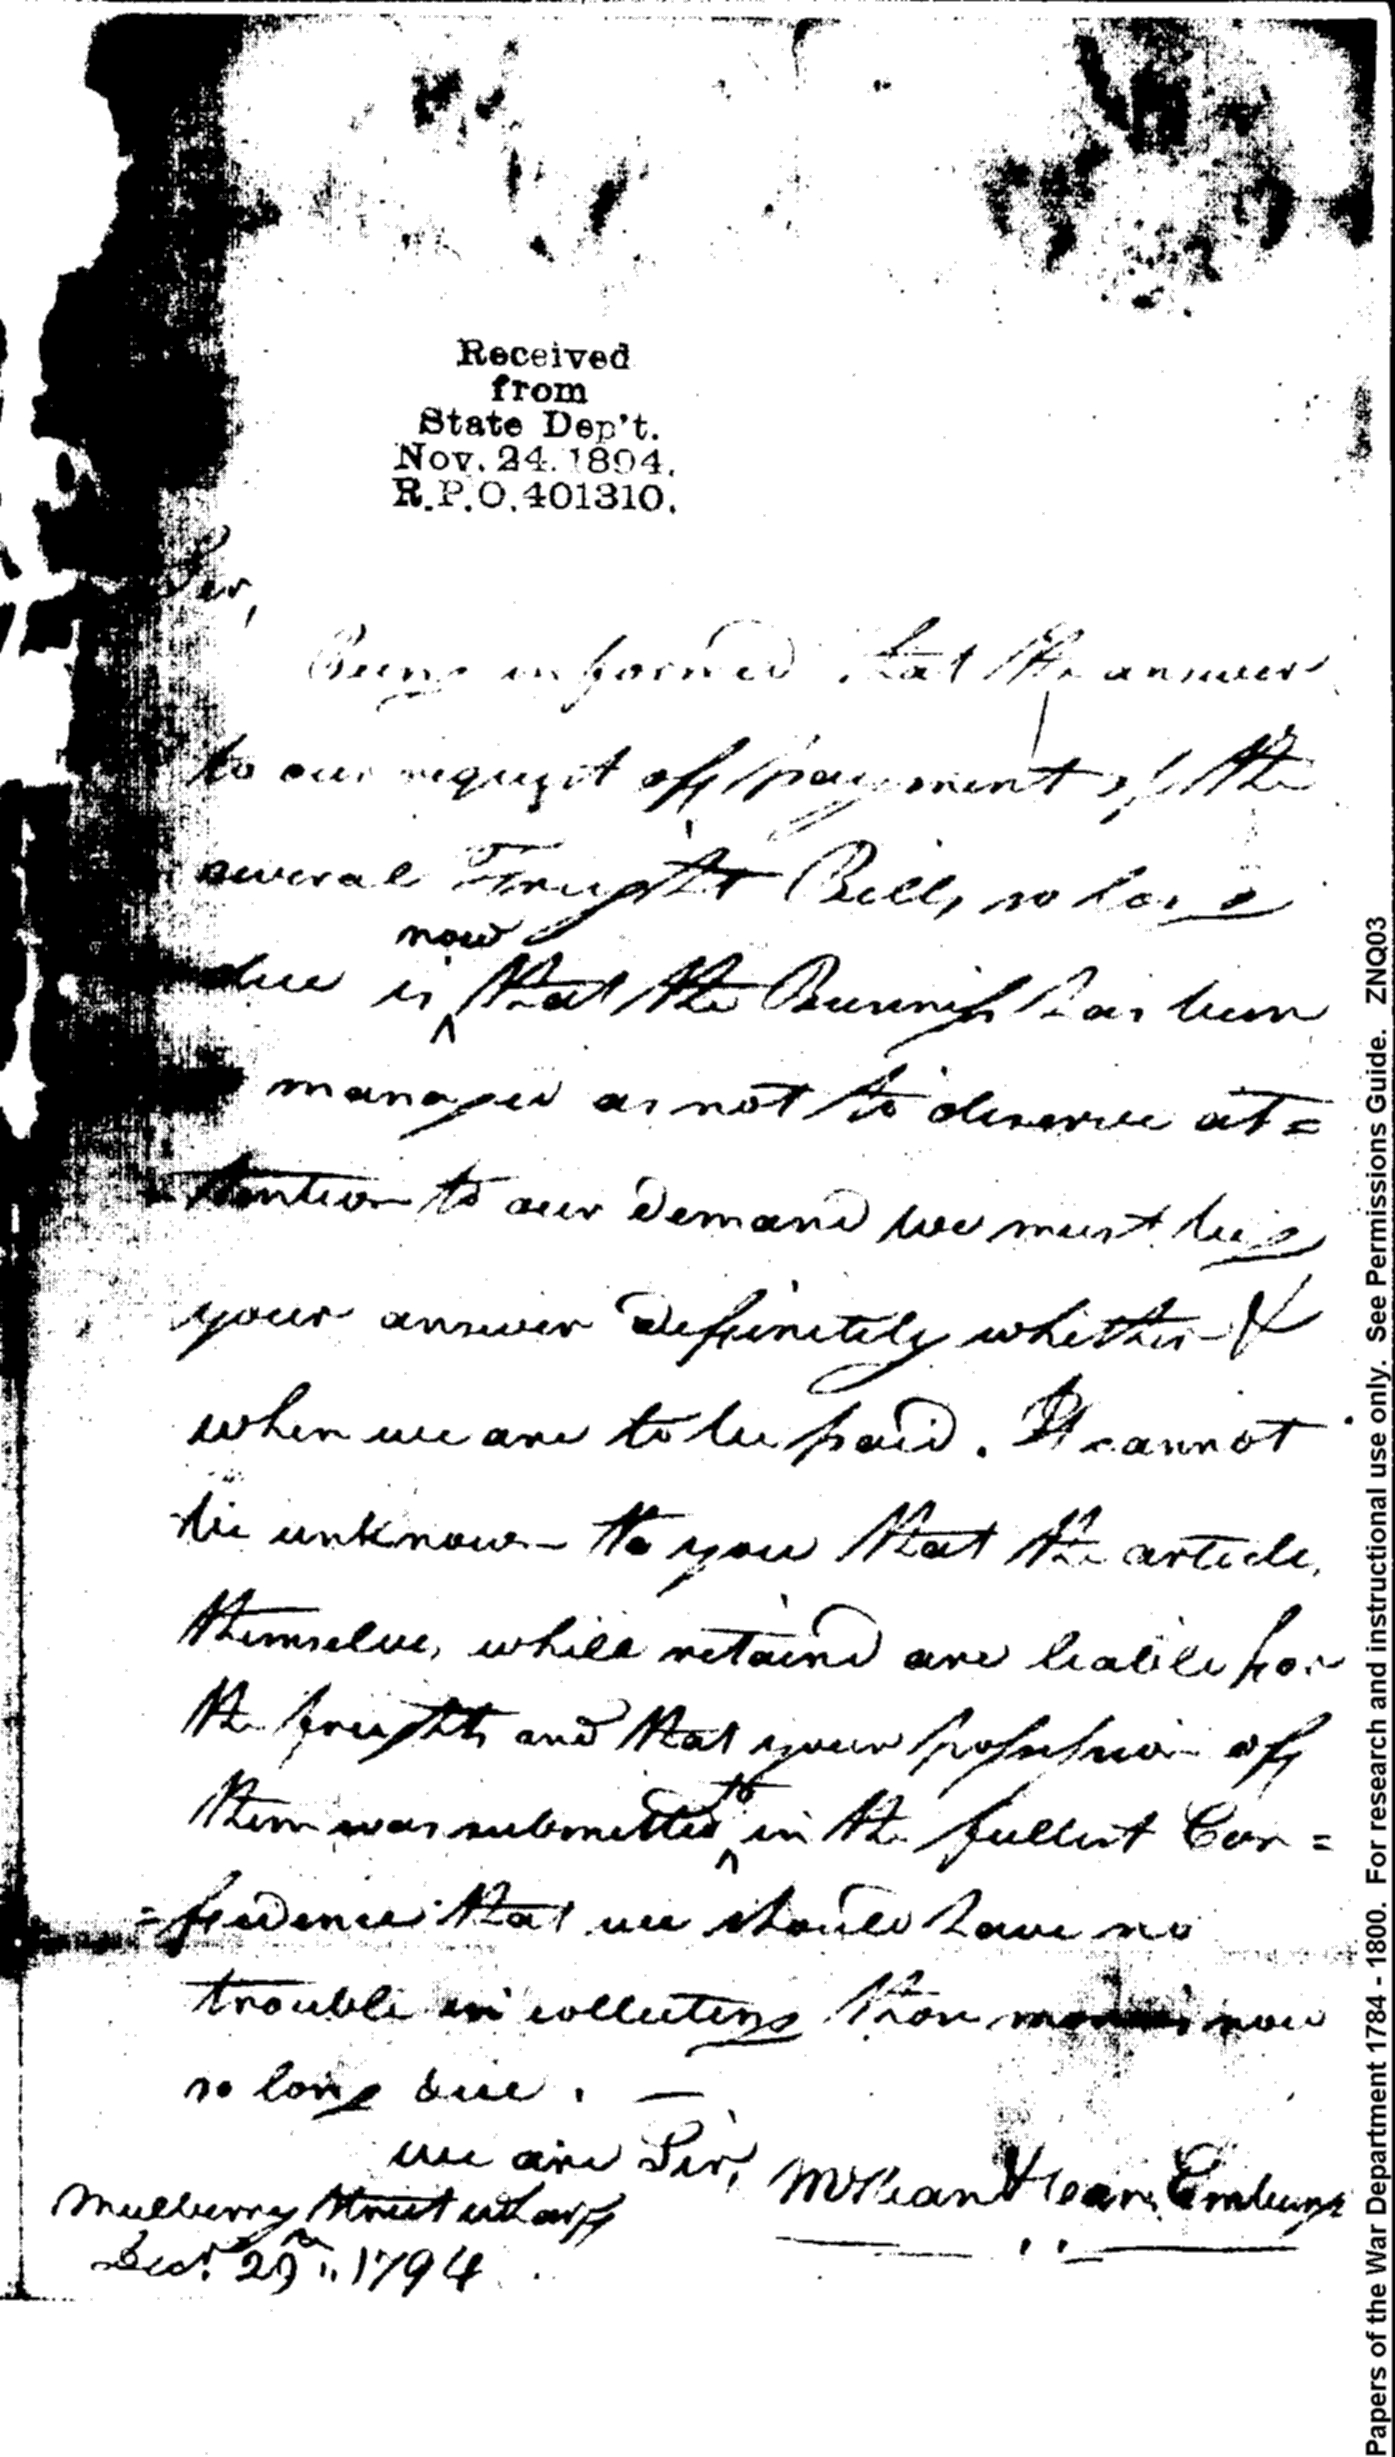 Received
from
State Dep't.
Nov. 24. 1894.
R.P.O. 401310.
Sir,
Being informed that the answer
to our request of payment of the
several Freight Bills so long
now
due is ^ that the Business has been
managed as not to deserve at=
tention to our demand we must beg
your answer definitely whether &
when we are to be paid. It cannot
be unknown to you that the articles
themselves while retaind are liable for
the freights and that your possession of
to
them was submitted ^ in the fullest Con=
=fidence that we should have no
trouble in collecting now
so long due. —
we are Sir,
Mulberry Street wharf
Decr. 29th 1794
Papers of the War Department 1784 - 1800. For research and instructional use only. See Permissions Guide. ZNQ03